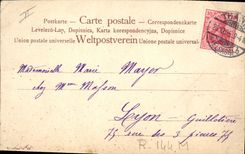 Postkarte — Carte postale — Correspondenzkarte
Levelező-Lap, Dopisnice, Karta korespondencyjna, Dopisnica
Union postale universelle Weltpostverein Unione postale universale
Mademoiselle Marie Mayor
chez Mme Masson
Lyon - Guillotière
75 rue des 3 pierres 75
R. 144 M